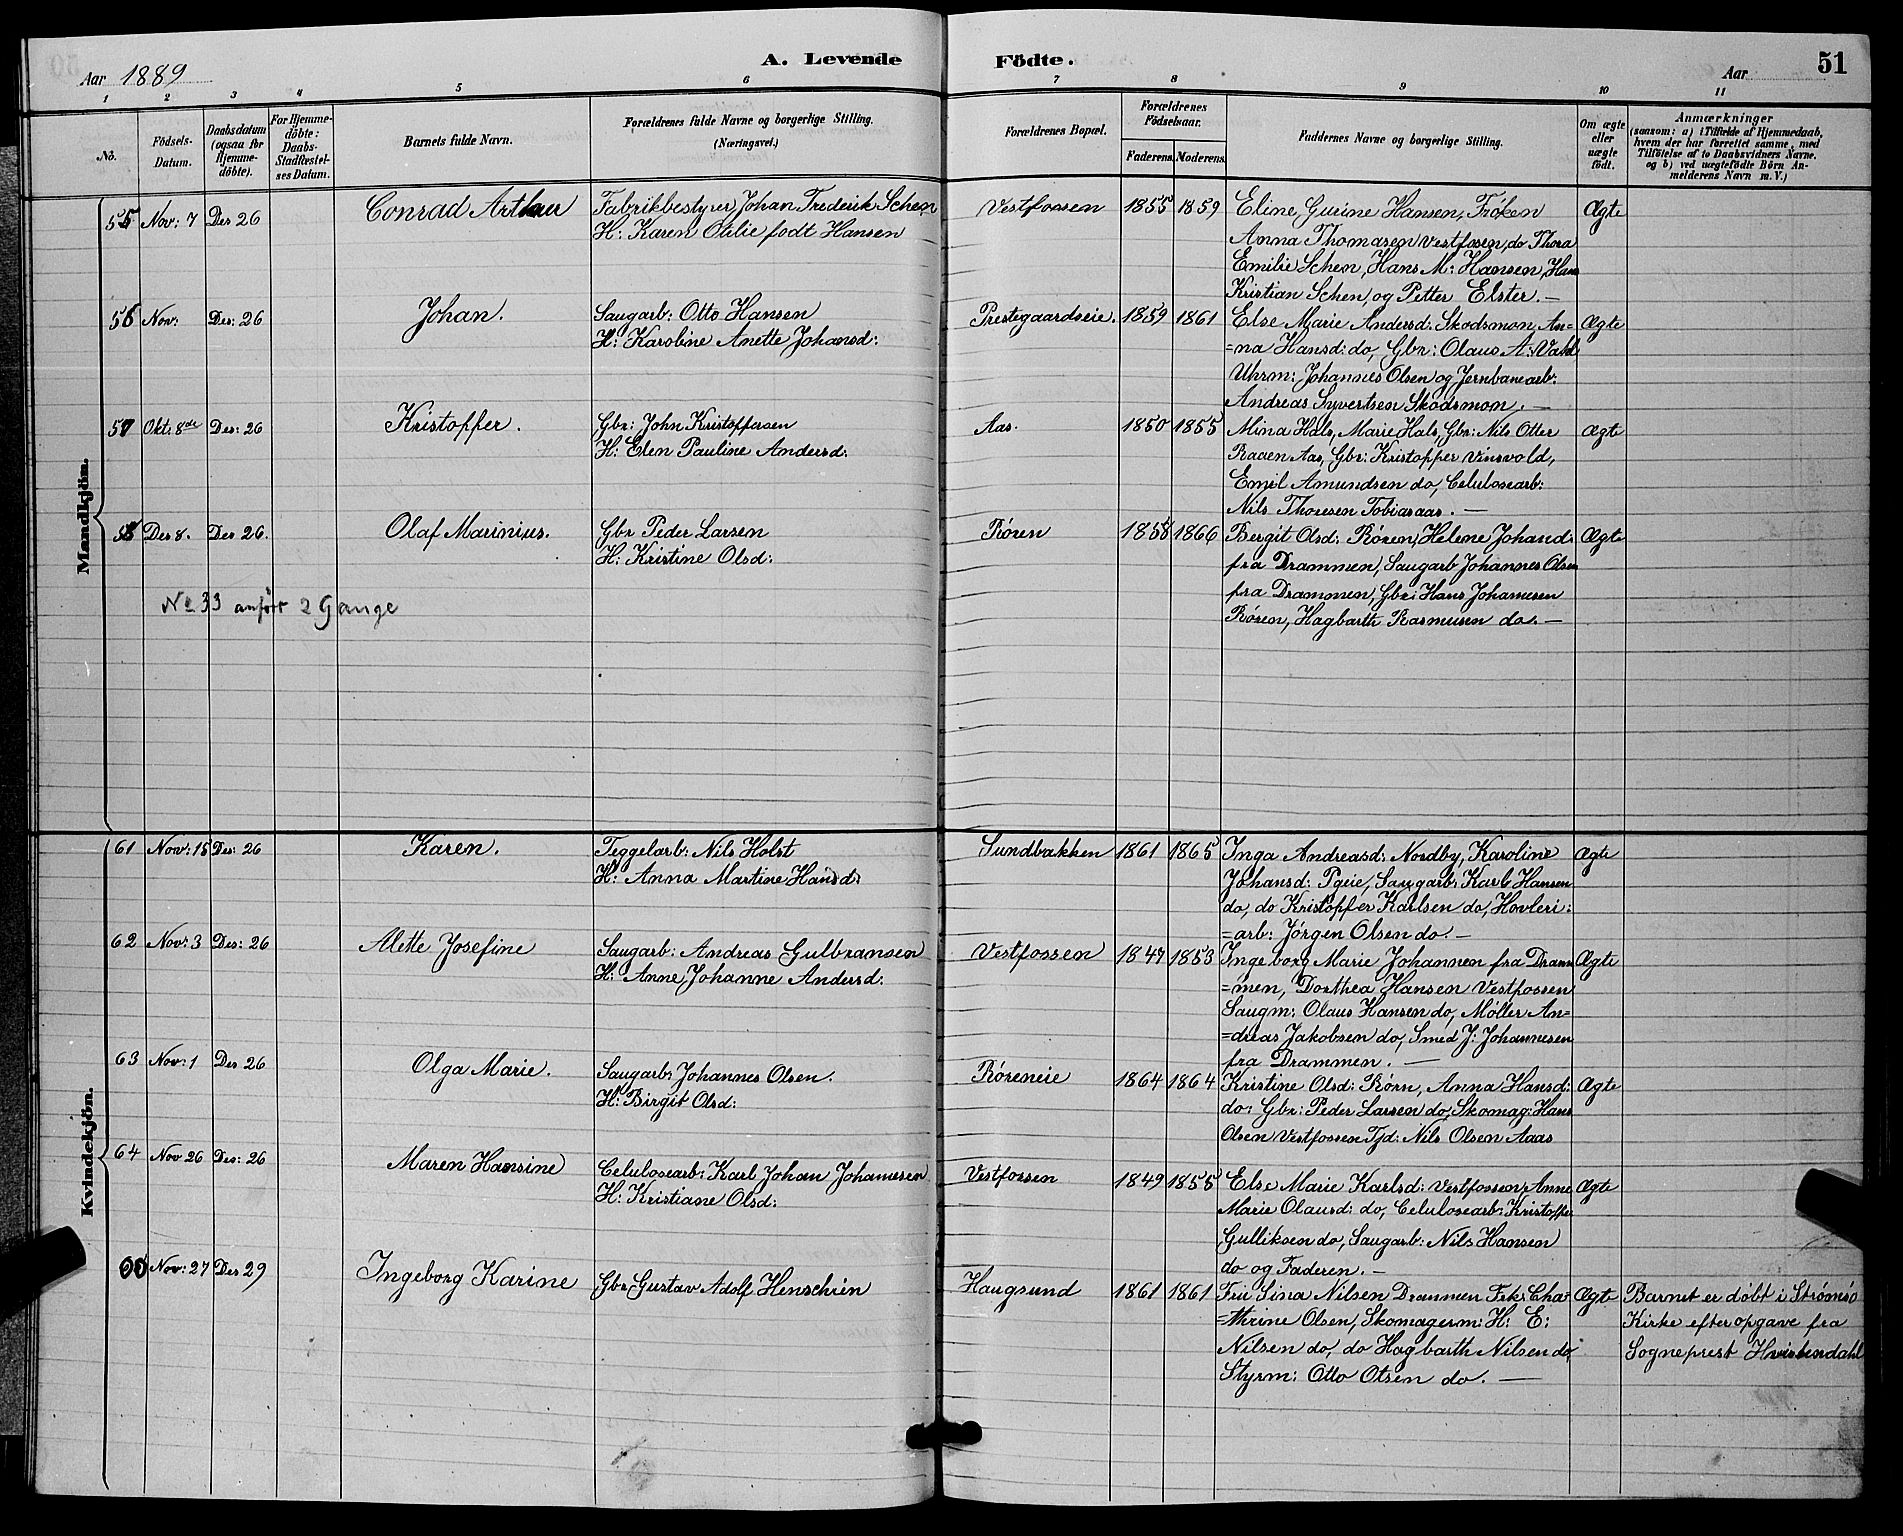 A. Levende Födte.
51
Aar 1889
Aar
1 2 3 4 5 6 7 8 9 10 11
No.
Födsels-Datum.
Daabsdatum (ogsaa for Hjemme-döbte).
For Hjemme-döbte: Daabs-Stadfæstel-ses Datum.
Barnets fulde Navn.
Forældrenes fulde Navne og borgerlige Stilling. (Næringsvei.)
Forældrenes Bopæl.
Forældrenes Födselsaar.
Faderens. Moderens.
Faddernes Navne og borgerlige Stilling.
Om ægte eller uægte födt.
Anmærkninger
(saasom: a) i Tilfælde af Hjemmedaab,
hvem der har forrettet samme, med
Tilföielse af to Daabsvidners Navne.
og b) ved uægtefödte Börn An-
melderens Navn m. V.)
Mandkjön.
55 Nov: 7 Des 26 Conrad Arthur Fabrikbestyrer Johan Frederik Schen Vestfossen 1855 1859 Eline Gurine Hansen, Frøken Ægte
H: Karen Otilie født Hansen
Anna Thomasen Vestfosen, do Thora
Emilie Schen, Hans M: Hansen, Hans
Kristian Schen, og Petter Elster. —
56 Nov: Des: 26 Johan. Saugarb: Otto Hansen Prestegaardseie. 1859 1861 Else Marie Andersd: Skodsmon, An= Ægte
H: Karoline Anette Johansd:
=na Hansd: do, Gbr: Olaus A: Vahl
Uhrm: Johannes Olsen og Jernbanearb:
Andreas Syvertsen Skodsmon. —
57 Okt: 8de Des: 26 Kristoffer. Gbr: John Kristoffersen Aas. 1850 1855 Mina Hals, Marie Hals, Gbr: Nils Otter Ægte
H: Elen Pauline Andersd:
Raaen Aas, Gbr: Kristoffer Vinsvold,
Emil Amundsen do, Celulosearb:
Nils Thoresen Tobiasaas. —
58 Des 8. Des 26. Olaf Marinius. Gbr Peder Larsen Røren 1858 1866 Bergit Olsd: Røren, Helene Johansd: Ægte
H: Kristine Olsd:
fra Drammen, Saugarb Johannes Olsen
fra Drammen, Gbr: Hans Johanesen
Røren, Hagbarth Rasmusen do. —
No 33 anført 2 Gange
Kvindekjön.
61 Nov: 15 Des: 26 Karen. Teggelarb: Nils Holst Sundbakken 1861 1865 Inga Andreasd: Nordby, Karoline Ægte
H: Anna Martine Hansd:
Johansd: Pgeie, Saugarb: Karl Hansen
do, do Kristoffer Karlsen do, Hovleri=
=arb: Jørgen Olsen do. —
62 Nov: 3 Des: 26 Alette Josefine Saugarb: Andreas Gulbransen Vestfossen 1847 1853 Ingeborg Marie Johannen fra Dram Ægte
H: Anne Johanne Andersd:
=men, Dorthea Hansen Vestfossen
Saugm: Olaus Hansen do, Møller An=
=dreas Jakobsen do, Smed J: Johannesen
fra Drammen. —
63 Nov: 1 Des 26 Olga Marie. Saugarb: Johannes Olsen. Røreneie 1864 1864 Kristine Olsd: Rørn, Anna Hansd: Ægte
H: Birgit Olsd:
do: Gbr: Peder Larsen do, Skomag: Hans
Olsen Vestfossen Tjd: Nils Olsen Aaas
64 Nov 26 Des: 26 Maren Hansine Celulosearb: Karl Johan Johanesen Vestfossen 1849 1855 Else Marie Karlsd: Vestfossen, Anne Ægte
H: Kristiane Olsd:
Marie Olausd: do, Celulosearb: Kristoffer
Gulliksen do, Saugarb: Nils Hansen
do og Faderen. —
Nov: 27 Des 29 Ingeborg Karine Gbr Gustav Adolf Henschien Haugsund 1861 1861 Fru Sina Nilsen Drammen Frk: Cha= Ægte Barnet er døbt i Strømsø
=thrine Olsen, Skomagerm: H: E: Kirke efter opgave fra
Nilsen do, do Hagbarth Nilsen do, Sogneprest Hvistendahl
Styrm: Otto Olsen do. —